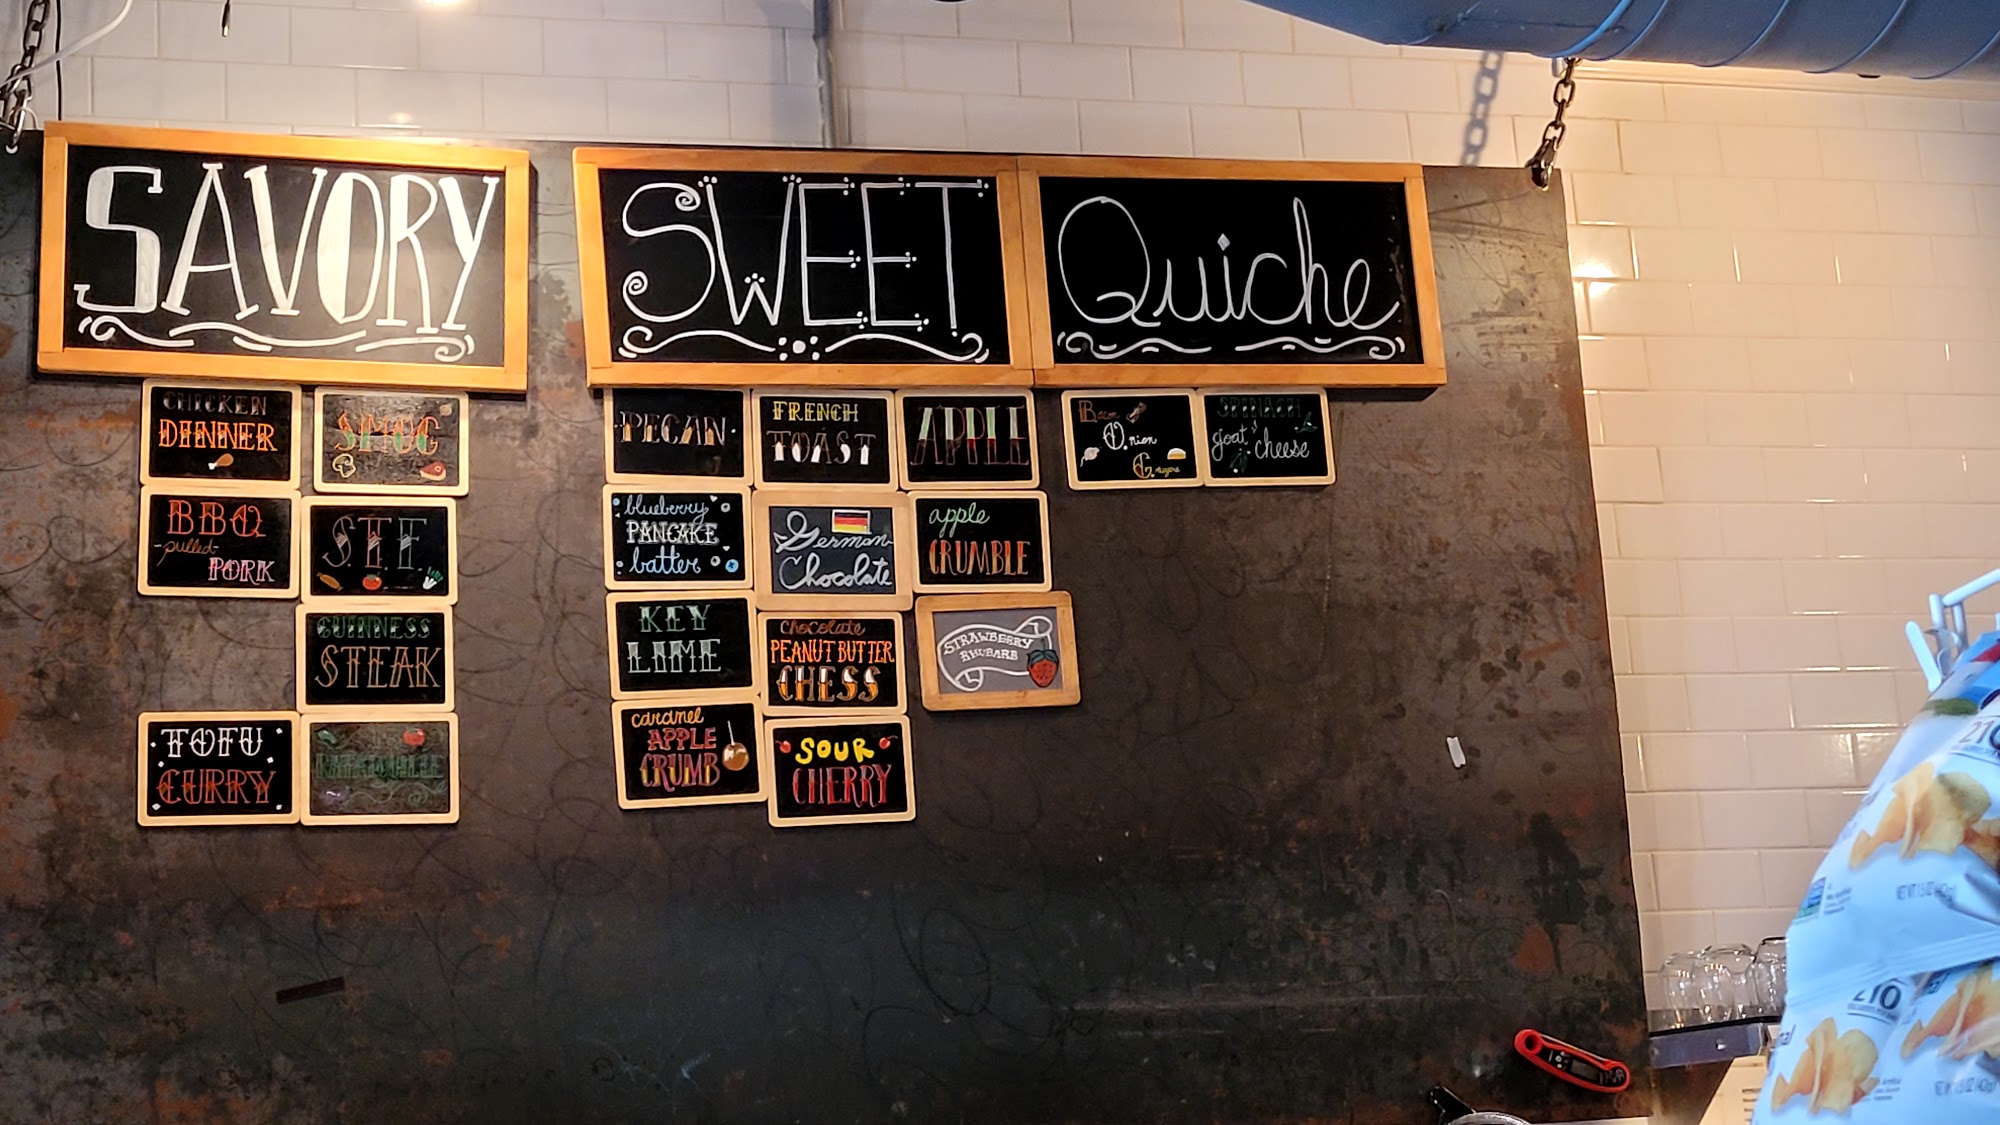 SAVORY
CHICKEN
DINNER
SMOG
BBQ
-pulled-
PORK
S.T.F.
GUINNESS
STEAK
TOFU
CURRY
RATATOUILLE
SWEET
PECAN
FRENCH
TOAST
APPLE
blueberry
PANCAKE
batter
German
Chocolate
apple
CRUMBLE
KEY
LIME
Chocolate
PEANUT BUTTER
CHESS
STRAWBERRY
RHUBARB
caramel
APPLE
CRUMB
SOUR
CHERRY
Quiche
Bacon
Onion
Gruyere
SPINACH
goat
cheese
210
210